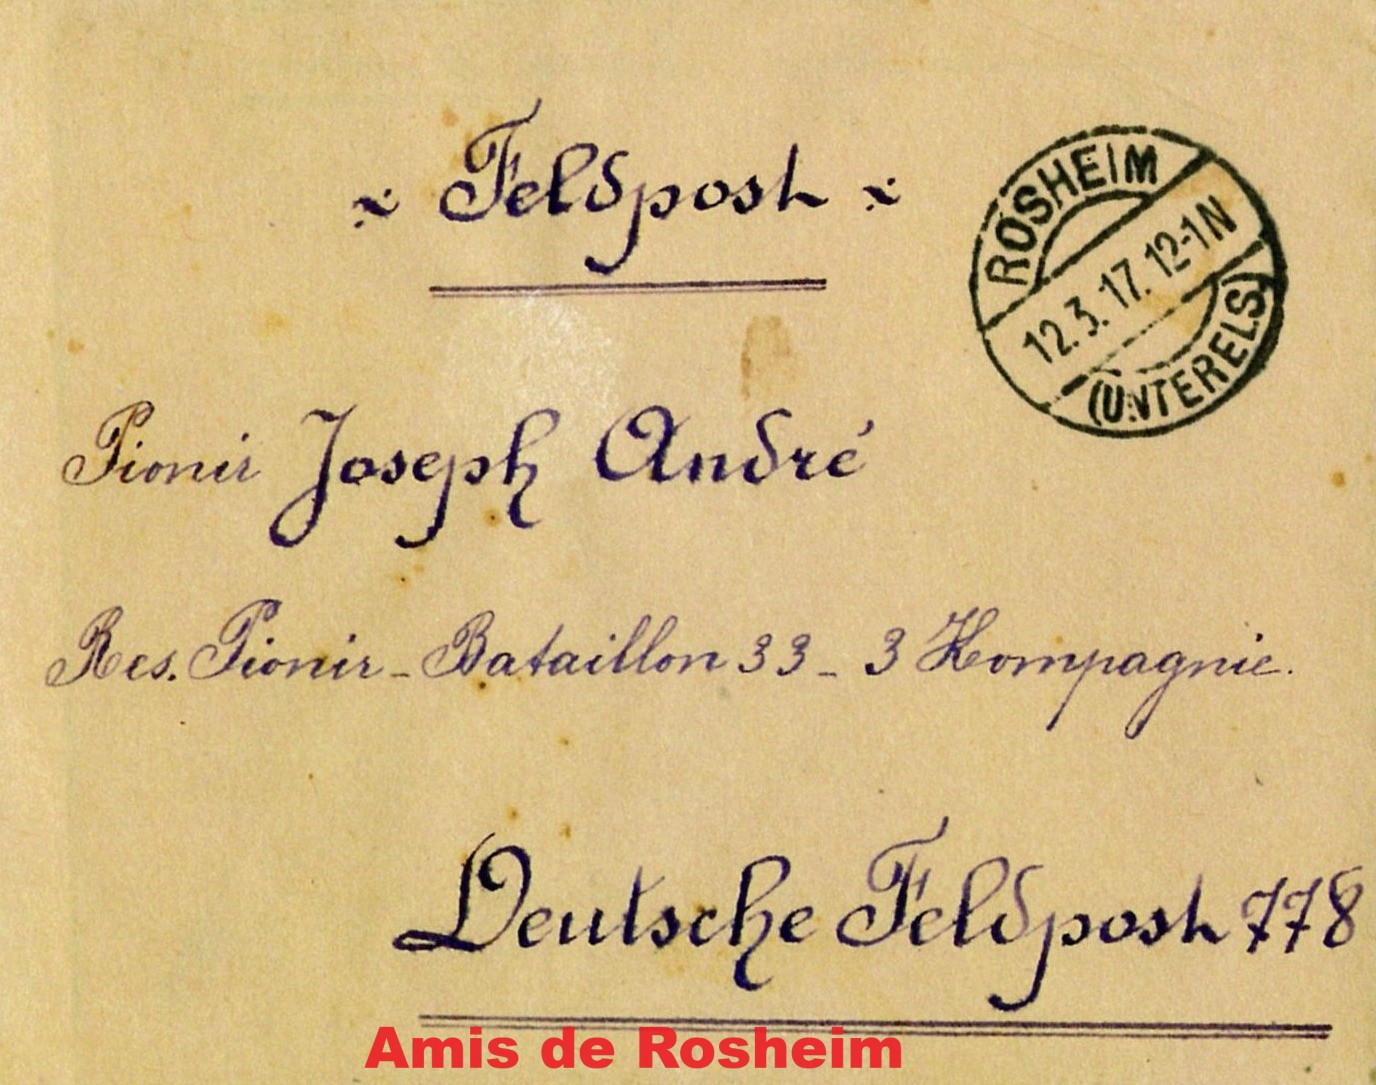 x Feldpost x
ROSHEIM
12.3.17.12-1N
(UNTERELS)
Pionir Joseph André
Res. Pionir - Bataillon 33 - 3 Kompagnie.
Deutsche Feldpost 778
Amis de Rosheim